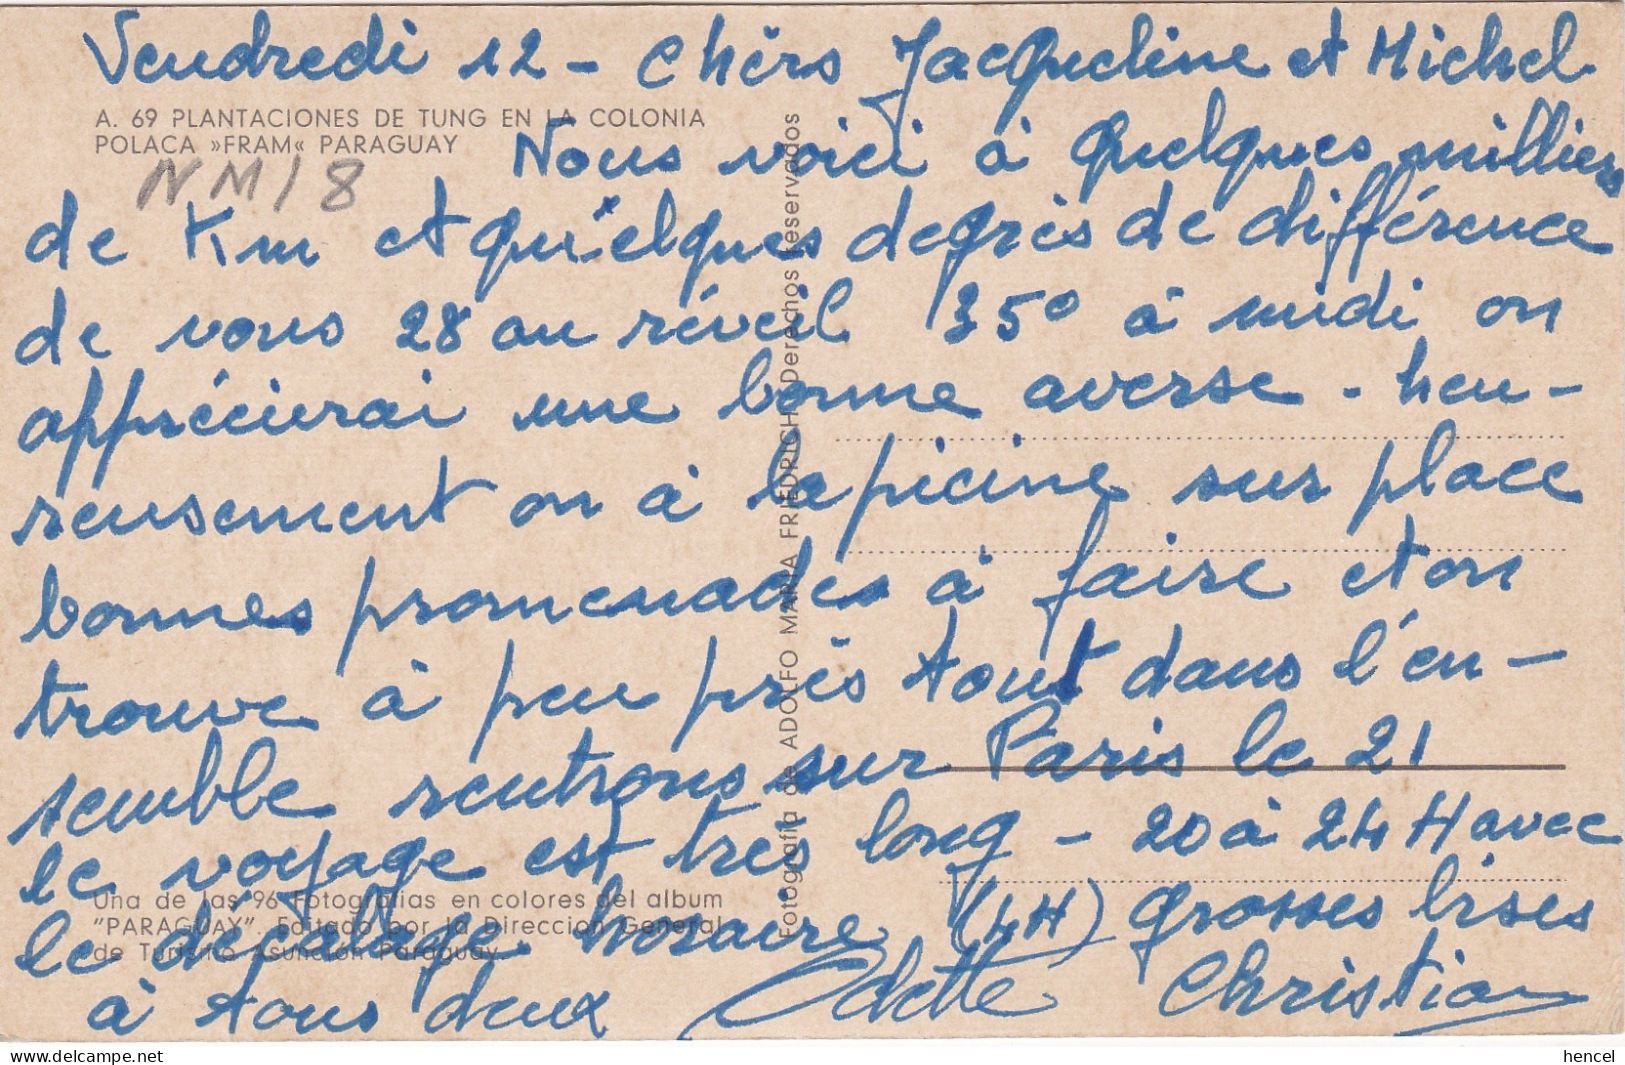 Vendredi 12 - Chèrs Jacqueline et Michel
A. 69 PLANTACIONES DE TUNG EN LA COLONIA
POLACA »FRAM« PARAGUAY
NM/8
Nous voici à quelques milliers
de Km et quelques degrès de différence
de vous 28 au réveil 35° à midi on
apprécierai une bonne averse - heu-
reusement on à la picine sur place
bonnes promenades à faire et on
trouve à peu près tout dans l'en-
semble rentrons sur Paris le 21
le voyage est très long - 20 à 24 H avec
le décalage horaire (4H) grosses bises
à tous deux Odette Christian
Una de las 96 Fotografias en colores del album
"PARAGUAY". Editado por la Direccion General
de Turismo Asunción Paraguay.
Fotografia de ADOLFO MARIA FRIEDRICH Derechos reservados
www.delcampe.net
hencel